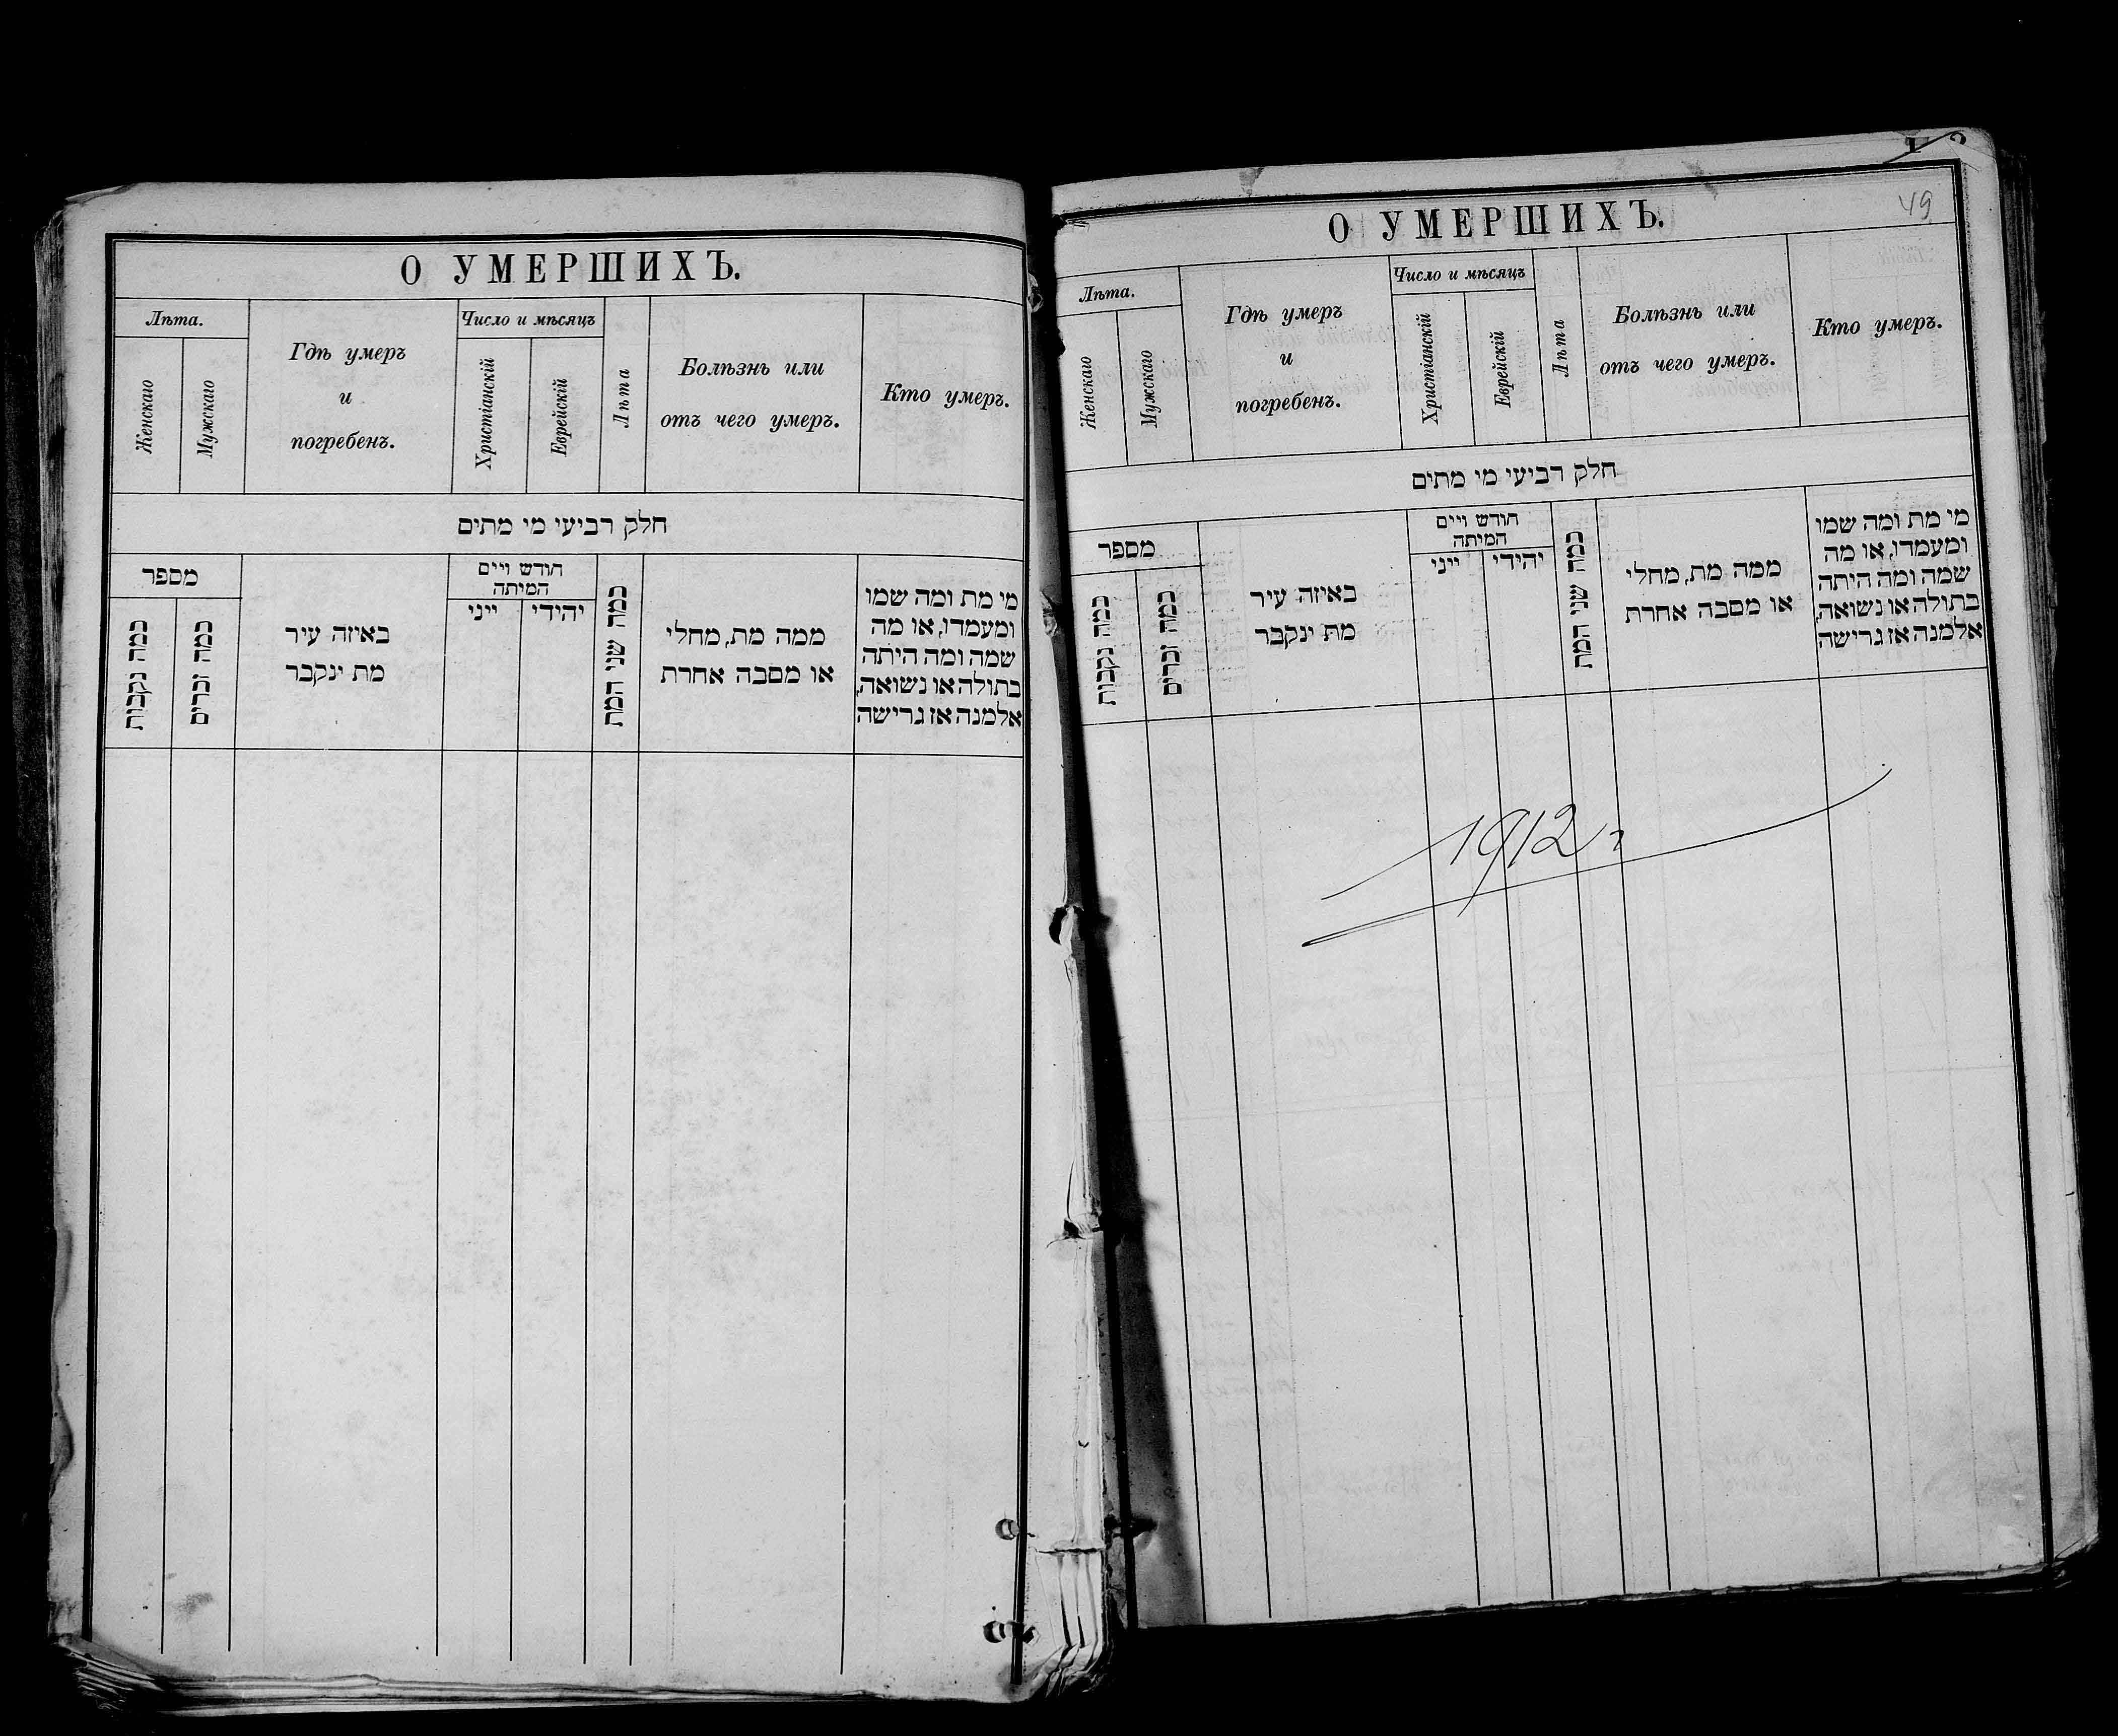 О УМЕРШИХЪ.
Лѣта.
Женскаго
Мужскаго
Гдѣ умеръ
и
погребенъ.
Число и мѣсяцъ
Христіанскій
Еврейскій
Лѣта
Болѣзнь или
отъ чего умеръ.
Кто умеръ.
חלק רביעי מי מתים
מספר
כמה נקבות
כמה זכרים
באיזה עיר
מת ינקבר
חודש ויים
המיתה
ייני
יהידי
כמה שני המת
ממה מת, מחלי
או מסבה אחרת
מי מת ומה שמו
ומעמדו, או מה
שמה ומה היתה
בתולה או נשואה,
אלמנה אז גרישה
О УМЕРШИХЪ.
49
Лѣта.
Женскаго
Мужскаго
Гдѣ умеръ
и
погребенъ.
Число и мѣсяцъ
Христіанскій
Еврейскій
Лѣта
Болѣзнь или
отъ чего умеръ.
Кто умеръ.
חלק רביעי מי מתים
מספר
כמה נקבות
כמה זכרים
באיזה עיר
מת ינקבר
חודש ויים
המיתה
ייני
יהידי
כמה שני המת
ממה מת, מחלי
או מסבה אחרת
מי מת ומה שמו
ומעמדו, או מה
שמה ומה היתה
בתולה או נשואה,
אלמנה אז גרישה
1912 г